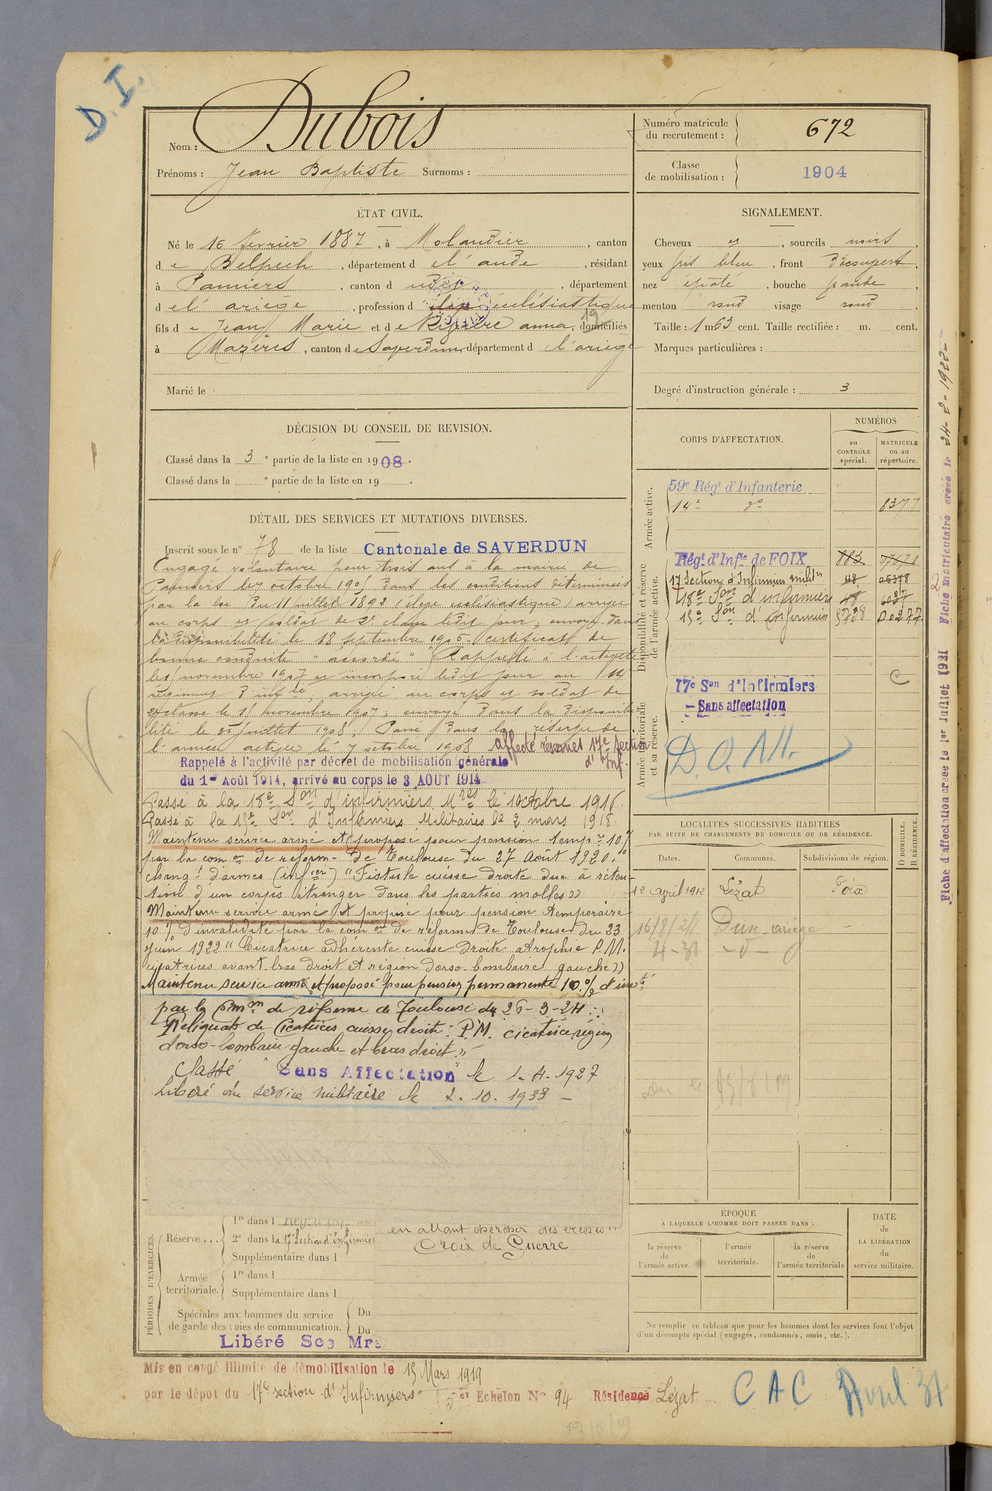 D. I.
Nom : Dubois
Prénoms : Jean Baptiste Surnoms :
Numéro matricule du recrutement : 672
Classe de mobilisation : 1904
ÉTAT CIVIL.
Né le 16 fevrier 1887, à Molandier, canton
de Belpech, département de l'aude, résidant
à Pamiers, canton d udit, département
de l'ariège, profession d ecclésiastique
fils de Jean Marie et de anna, domiciliés
19
à Mazères, canton de Saverdun, département d l'ariege
Marié le
SIGNALEMENT.
Cheveux et, sourcils noirs,
yeux gris bleu, front découvert,
nez épaté, bouche grande,
menton rond visage rond
Taille : 1 m 63 cent. Taille rectifiée : m. cent.
Marques particulières :
Degré d'instruction générale : 3
DÉCISION DU CONSEIL DE REVISION.
Classé dans la 3e partie de la liste en 1908.
Classé dans la e partie de la liste en 19 .
DÉTAIL DES SERVICES ET MUTATIONS DIVERSES.
Inscrit sous le n° 78 de la liste Cantonale de SAVERDUN
Engagé volontaire pour trois ans à la mairie de
Pamiers le 7 octobre 1905 dans les conditions déterminées
par la loi du 11 juillet 1892 (élève ecclésiastique) arrivé
au corps et soldat de 2e classe le dit jour, envoyé dans
la disponibilité le 18 septembre 1906. certificat de
bonne conduite "accordé" Rappelé à l'activité
le novembre 1907 et incorporé le dit jour au 14e
régiment d'infie, arrivé au corps et soldat de
2e classe le novembre 1907; envoyé dans la disponibi
lité le juillet 1908. Passé dans la réserve de
l'armée active le 7 octobre 1908 affecté réservé 17e section d'Inf.
Rappelé à l'activité par décret de mobilisation générale
du 1er Août 1914, arrivé au corps le 3 AOUT 1914
Passé à la 18e Son d'infirmiers Mres le 1 octobre 1916.
Passé à la 15e Son d'Infirmiers Militaires le 2 mars 1918.
Maintenu service armé et proposé pour pension tempre 10%
par la com on de réforme de Toulouse du 27 août 1920.
chang.t d'armes (infier) "Fistule cuisse droite due à réten-
tion d'un corps étranger dans les parties molles"
Maintenu service armé et proposé pour pension temporaire
10% d'invalidité par la com on de réforme de Toulouse du 23
juin 1922 "Cicatrice adhérente cuisse droite atrophie P.M.
cicatrices avant bras droit et région dorso-lombaire gauche"
Maintenu service armé et proposé pour pension permanente 10% d'inv té
par la Comm on de réforme de Toulouse du 26-3-24 :
Reliquats de cicatrices cuisse droite : P.M. cicatrice région
dorso-lombaire gauche et bras droit"
Classé "Sans Affectation" le 1.4.1927
Libéré du service militaire le 2.10.1933 -
CORPS D'AFFECTATION.
NUMÉROS
au CONTRÔLE spécial.
MATRICULE ou au répertoire.
Armée active.
59e Régt d'Infanterie
14e do 6377
Disponibilité et réserve de l'armée active.
Régt d'Infie de FOIX
17 Section d'Infirmiers milit
18e Son d'infirmiers
15e Son d'infirmiers
Armée territoriale et sa réserve.
C
17e Son d'Infirmiers
- Sans affectation
D.O.M.
LOCALITÉS SUCCESSIVES HABITÉES
PAR SUITE DE CHANGEMENTS DE DOMICILE OU DE RÉSIDENCE.
Dates. Communes. Subdivisions de région. D DOMICILE. R RÉSIDENCE.
1er april 1912 Lézat Foix
16/9/24 Dun - ariège -
4-31 - d° -
PÉRIODES D'EXERCICES.
Réserve . . .
1re dans l
2e dans la 17 Section d'Infirmiers
Supplémentaire dans l
Armée territoriale.
1re dans l
Supplémentaire dans l
Spéciales aux hommes du service de garde des voies de communication.
Du
Du
en allant chercher des blessés"
Croix de Guerre
Libéré Sce Mre
ÉPOQUE
À LAQUELLE L'HOMME DOIT PASSER DANS :
la réserve de l'armée active.
l'armée territoriale.
la réserve de l'armée territoriale
DATE de LA LIBÉRATION du service militaire.
Ne remplir ce tableau que pour les hommes dont les services font l'objet
d'un décompte spécial (engagés, condamnés, omis, etc.).
Mis en congé illimité de démobilisation le 15 Mars 1919
par le dépôt du 17e section d'Infirmiers 5e Echelon N° 94 Résidence Lézat
CAC Avril 31
Fiche d'affectation créée le 1er Juillet 1921 Fiche matriculaire créée le 24-2-1922-